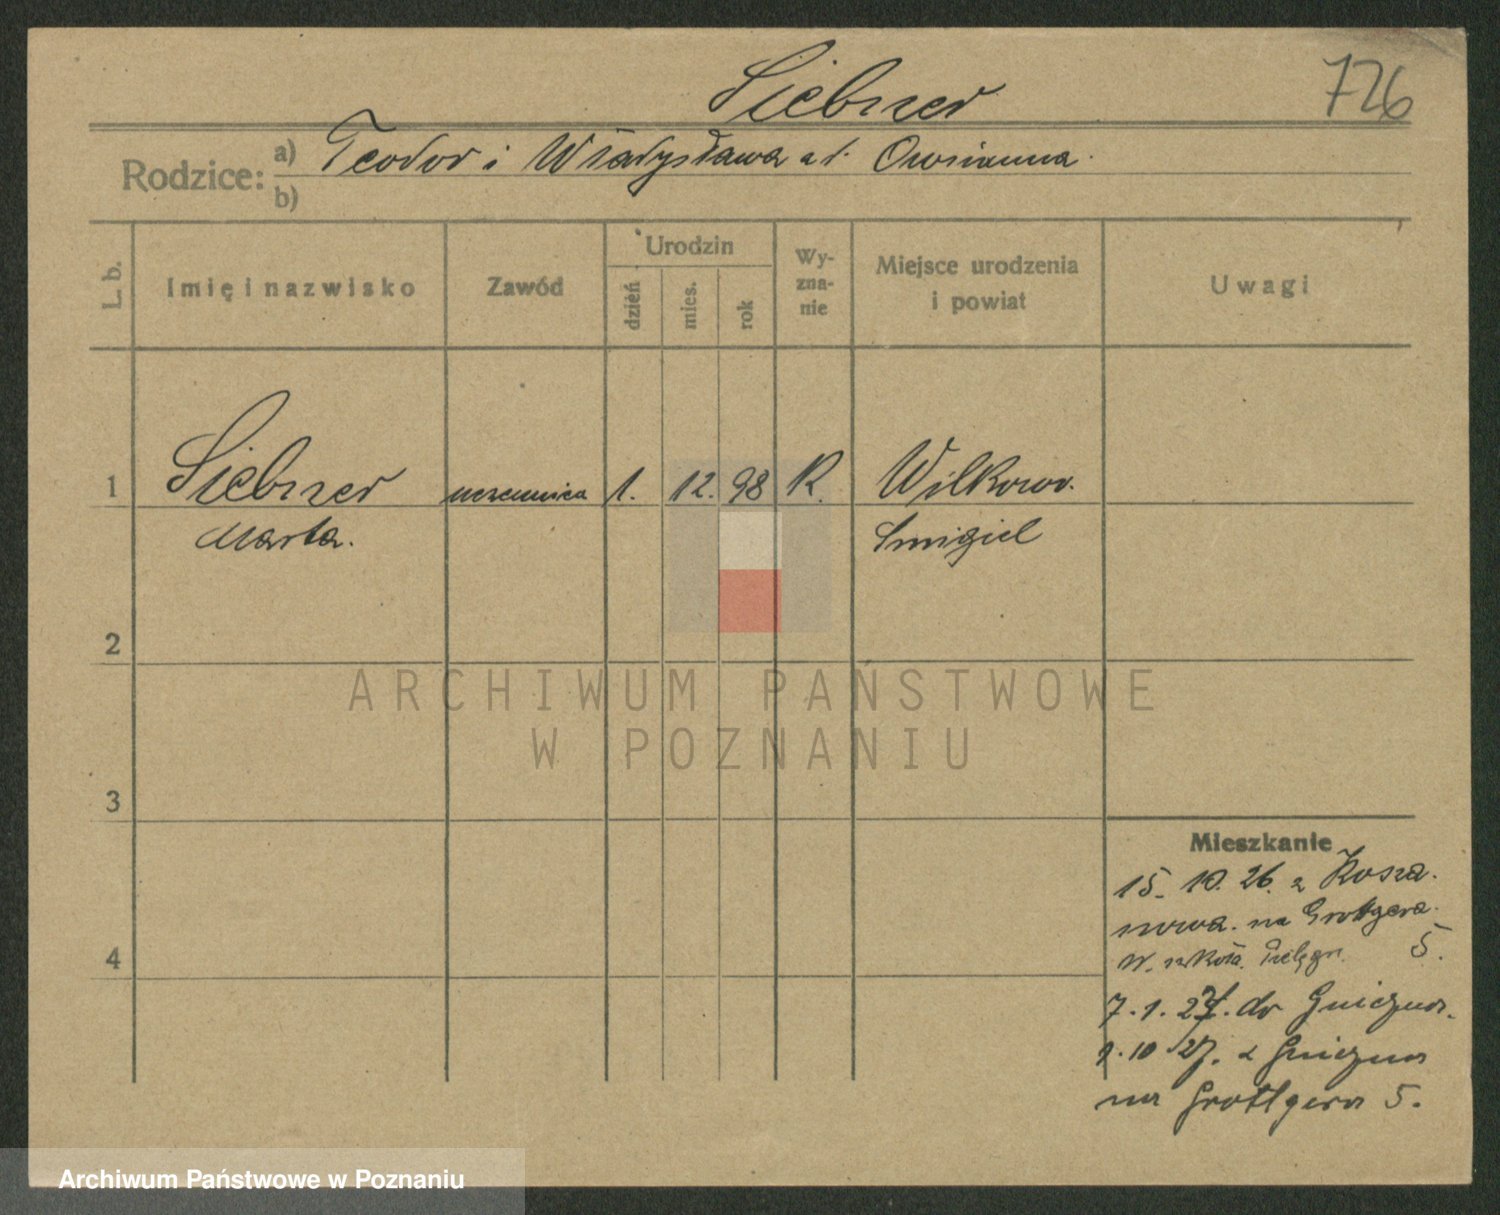 Siebner
726
Rodzice: a) Teodor i Władysława z d. Owsianna
b)
L. b.
Imię i nazwisko
Zawód
Urodzin
dzień
mies.
rok
Wy-
zna-
nie
Miejsce urodzenia
i powiat
Uwagi
1 Siebner uczennica 1. 12. 98 K. Wilkowo.
Marta. Śmigiel
2
ARCHIWUM PAŃSTWOWE
W POZNANIU
3
Mieszkanie
15. 10. 26. z
na Grottgera
W. szkoła Pielęgn. 5.
4
7. 1. 27. do Gniezna.
10 27. z Gniezna
na Grottgera 5.
Archiwum Państwowe w Poznaniu